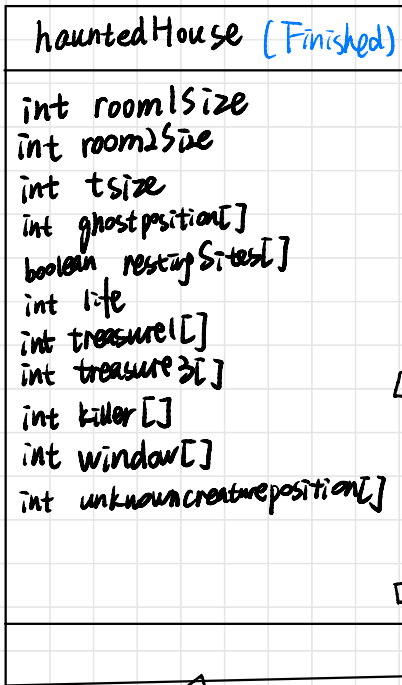 hauntedHouse (Finished)
int room1Size
int room2Size
int tsize
int ghostposition[]
boolean restingSites[]
int life
int treasure1[]
int treasure3[]
int killer[]
int window[]
int unknowncreatureposition[]